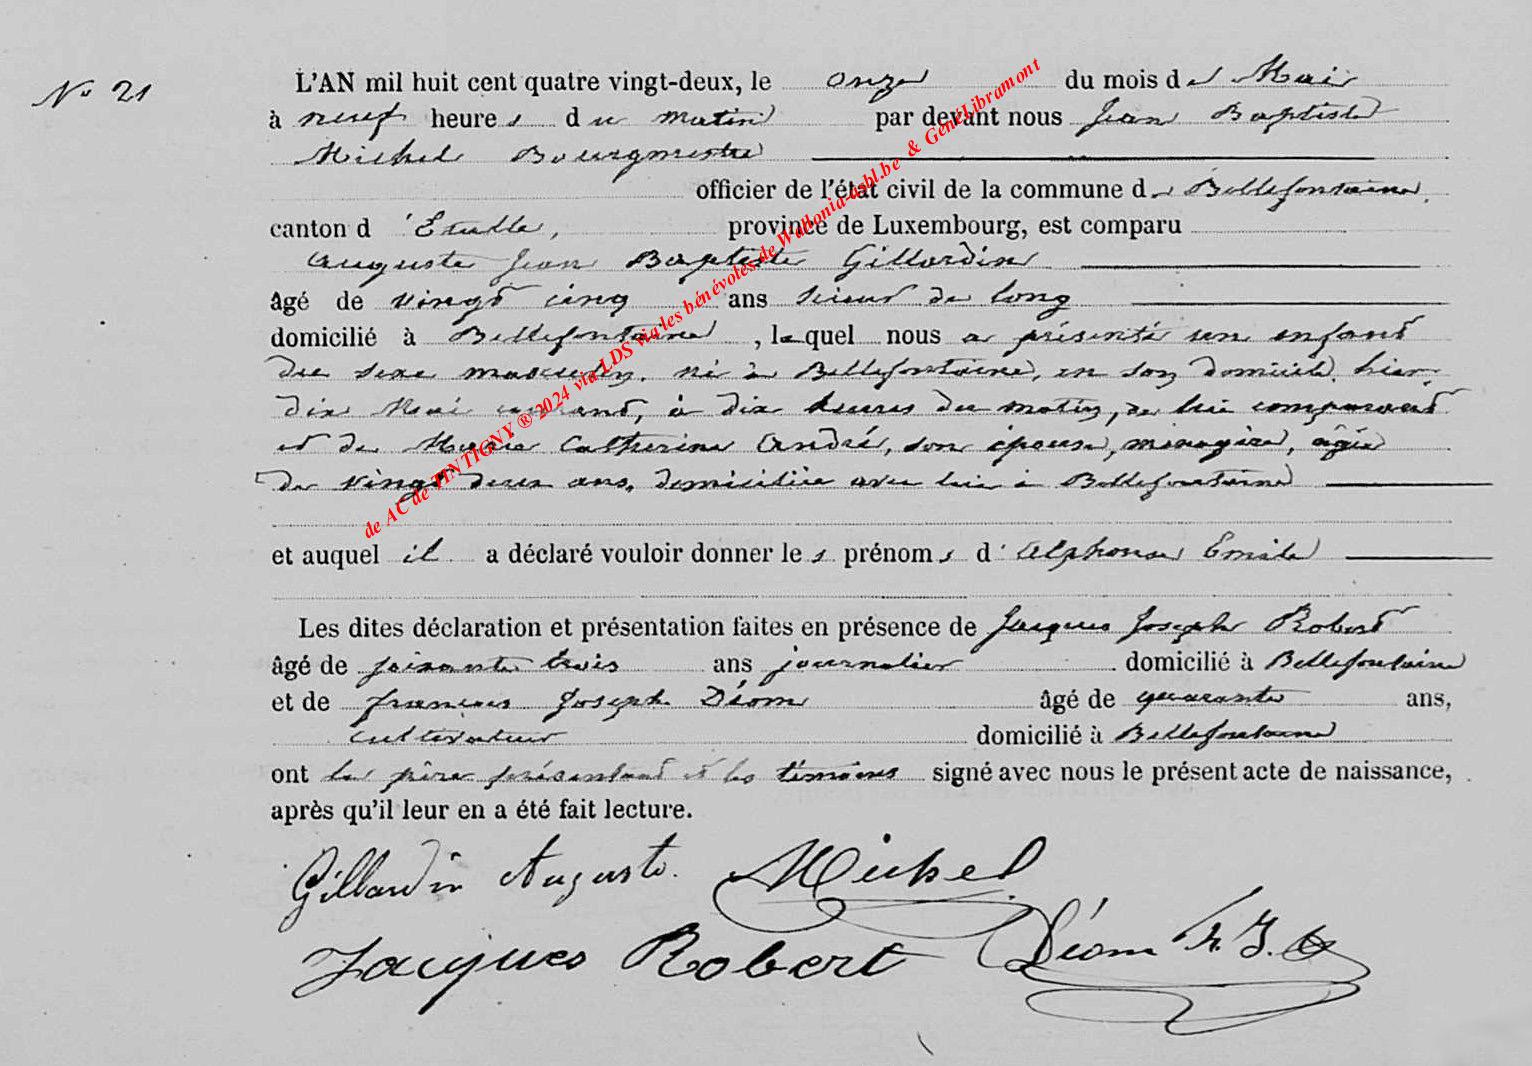 No 21
L'AN mil huit cent quatre vingt-deux, le onze du mois de Mai
à neuf heures du matin par devant nous Jean Baptiste
Michel Bourgmestre
officier de l'état civil de la commune de Bellefontaine
canton d'Etalle, province de Luxembourg, est comparu
Auguste Jean Baptiste Gillardin
âgé de vingt cinq ans scieur de long
domicilié à Bellefontaine, lequel nous a présenté un enfant
du sexe masculin. né à Bellefontaine, en son domicile. hier
dix Mai courant, à dix heures du matin, de lui comparant
et de Marie Catherine André, son épouse, ménagère, âgée
de vingt deux ans, domiciliée avec lui à Bellefontaine
et auquel il a déclaré vouloir donner les prénoms d'Alphonse Emile
Les dites déclaration et présentation faites en présence de Jacques Joseph Robert
âgé de soixante trois ans journalier domicilié à Bellefontaine
et de François Joseph Déom âgé de quarante ans,
cultivateur domicilié à Bellefontaine
ont le père présentant et les témoins signé avec nous le présent acte de naissance,
après qu'il leur en a été fait lecture.
Gillardin Auguste. Michel
Jacques Robert Déom Fr. J.
de AC de TINTIGNY ® 2024 via LDS via les bénévoles de Wallonia-asbl.be & GénéLibramont